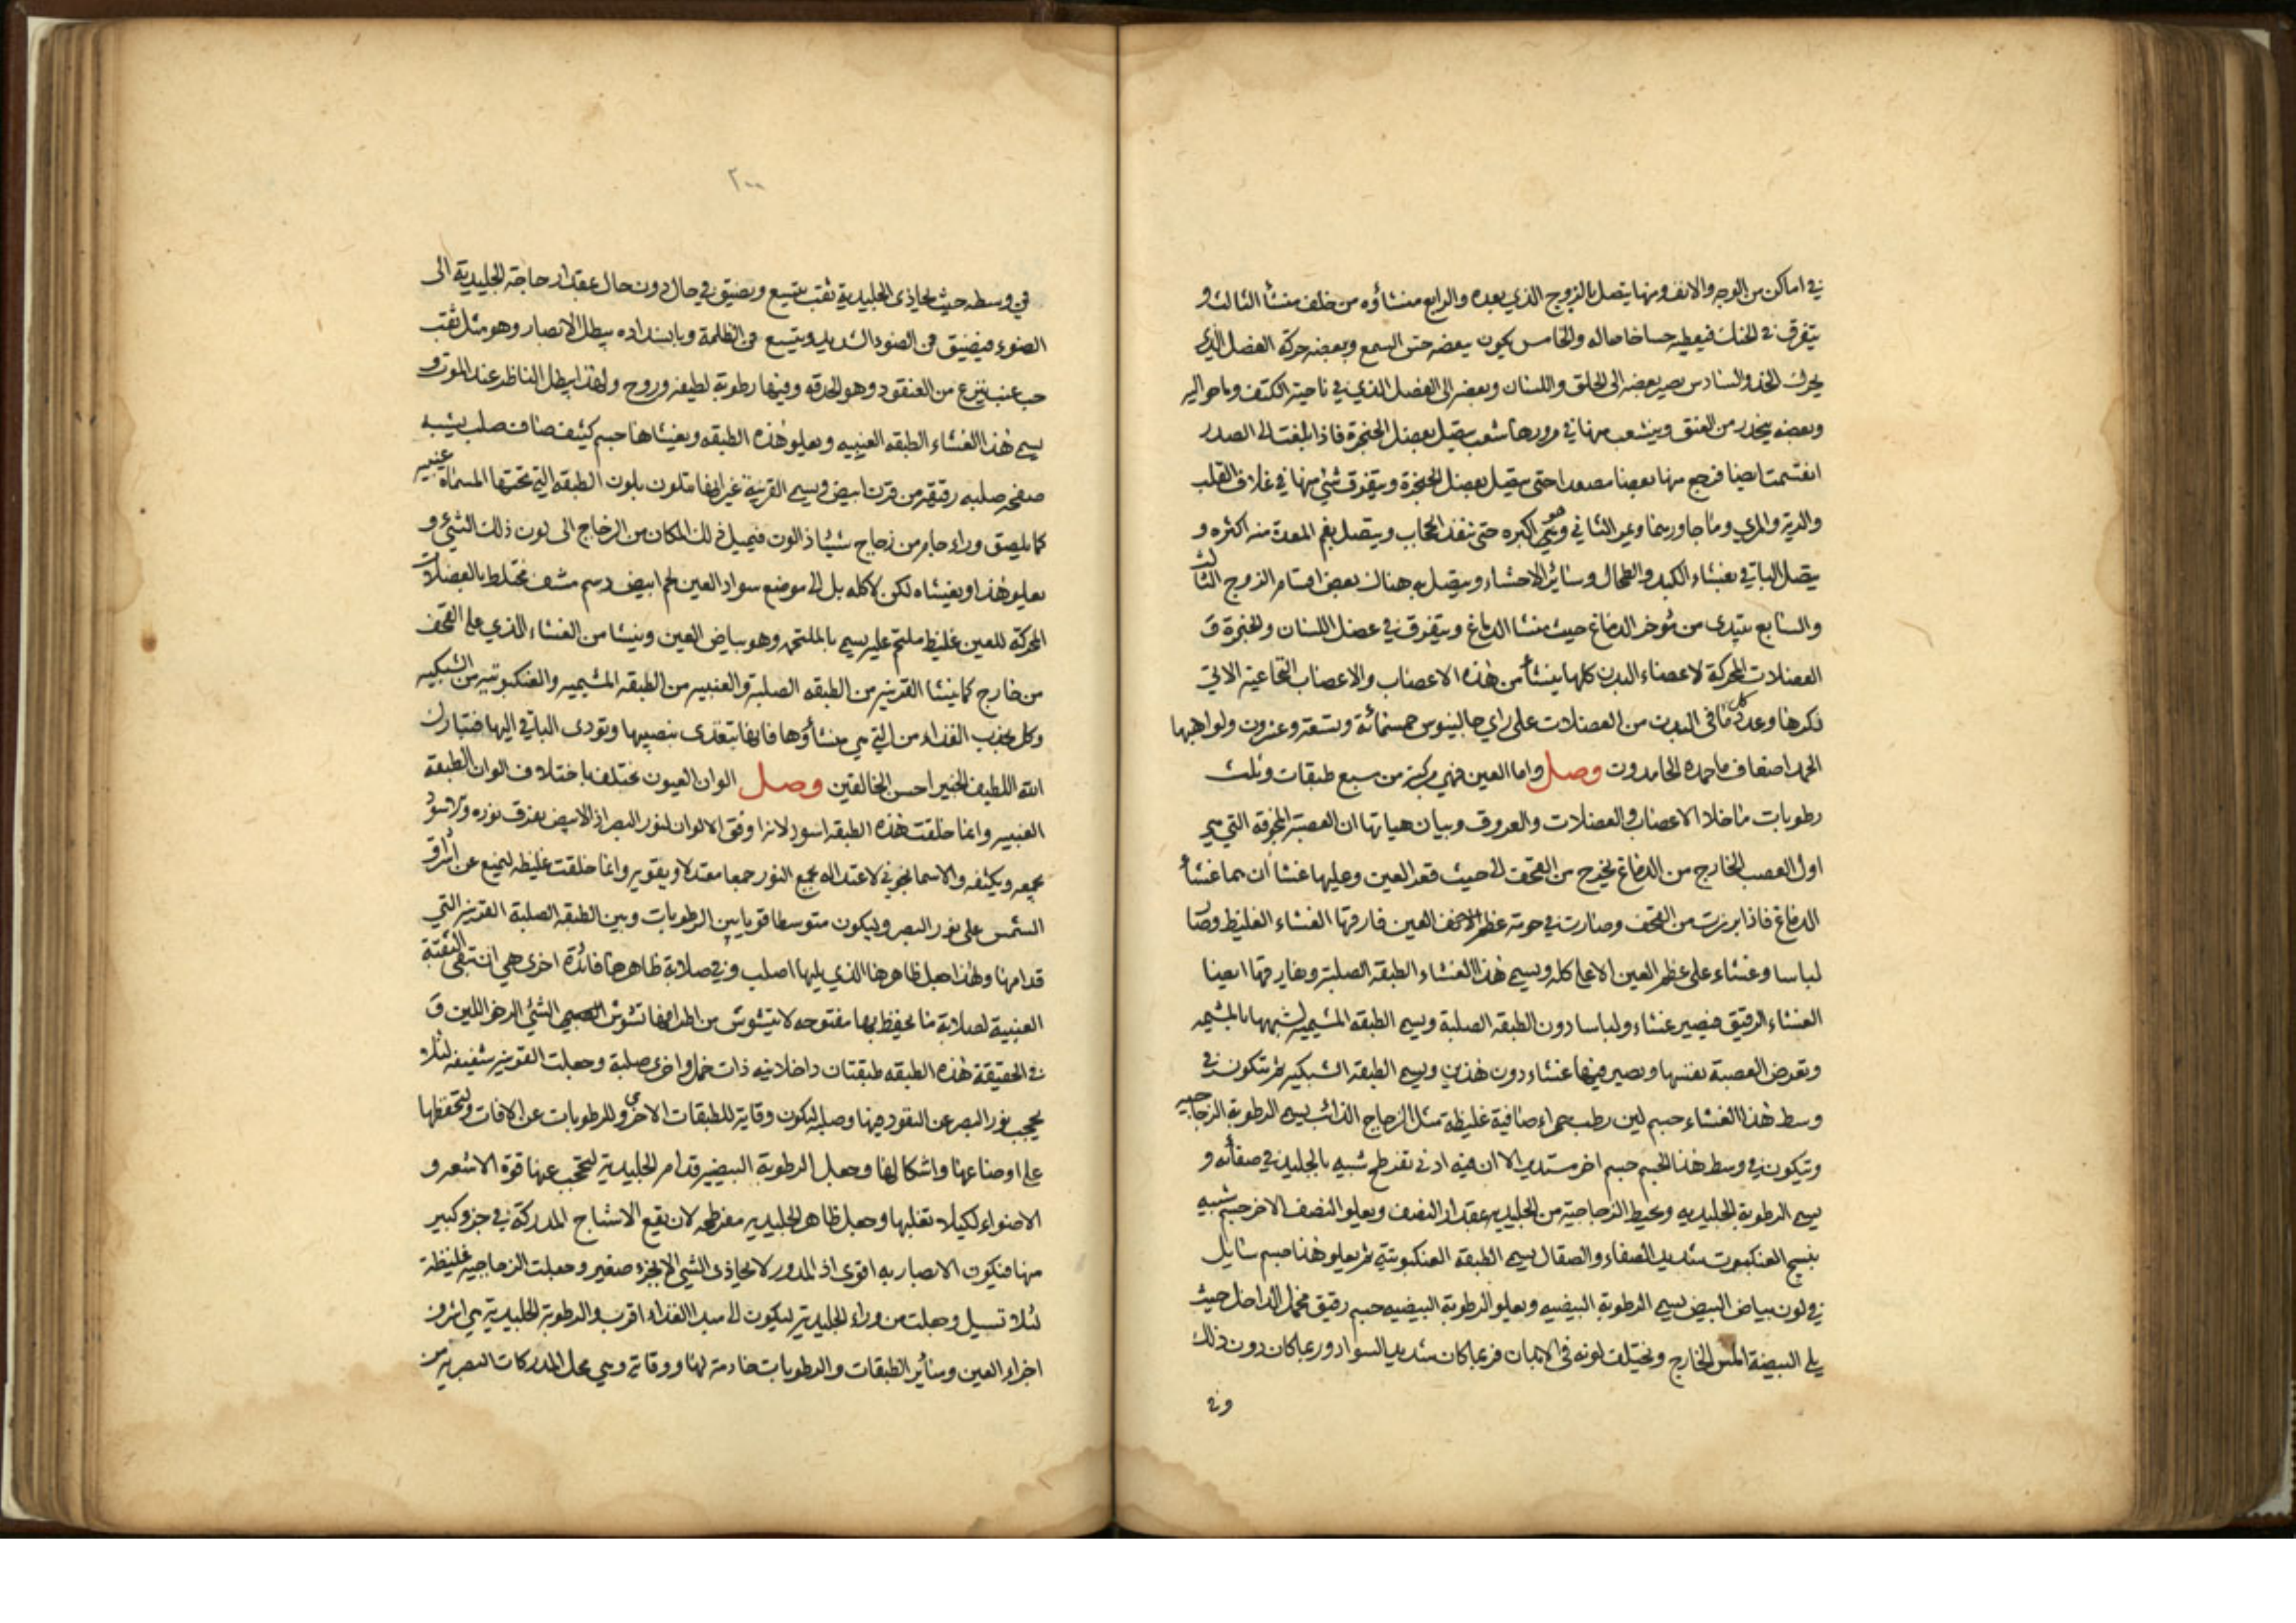 في اماكن من الوجه والانف ومنها يتصل بالزوج الذي بعده والرابع منشاؤه من خلف منشأ الثالث و
يتفرق في الحنك فيعطيه حسا خاصا له والخامس يكون ببعضه حس السمع وببعضه حركة العضل الذي
يحرك الخد والسادس يصير بعضه الى الحلق واللسان وبعضه الى العضل الذي في ناحية الكتف وما حواليه
وبعضه ينحدر من العنق وينشعب منها في مرورها شعب يتصل بعضل الحنجرة فاذا بلغت الى الصدر
انقسمت ايضا فرجع منها بعضا مصعدا حتى يتصل بعضل الحنجرة ويتفرق شئ منها في غلاف القلب
والرية والمري وما جاورهما ويمر الثاني وهو اكبره حتى ينفذ الحجاب ويتصل بفم المعدة منه اكثره و
يتصل الباقي بغشاء الكبد والطحال وسائر الاحشاء ويتصل به هناك بعض اقسام الزوج الثالث
والسابع يبتدى من مؤخر الدماغ حيث منشا الدماغ ويتفرق في عضل اللسان والحنجرة و
العضلات المحركة لاعضاء البدن كلها ينشأ من هذه الاعصاب والاعصاب النخاعية الاتي
ذكرها وعدد كل ما في البدن من العضلات على راي جالينوس خمسمائة وتسعة وعشرون ولواهبها
الحمد اضعاف ما حمده الحامدون وصل واما العين فهي مركبة من سبع طبقات وثلث
رطوبات ما خلا الاعصاب والعضلات والعروق وبيان هياتها ان العصبة المجوفة التي هي
اول العصب الخارج من الدماغ يخرج من القحف الى حيث قعر العين وعليها غشا أن هما غشأ
الدماغ فاذا برزت من القحف وصارت في جوبة عظم العين فارقها الغشاء الغليظ وصار
لباسا وغشاء على عظم العين الاعلى كله ويسمى هذا الغشاء الطبقة الصلبة ويفارقها ايضا
الغشاء الرقيق فيصير غشاء ولباسا دون الطبقة الصلبة ويسمى الطبقة المشيمية لشبهها بالمشيمه
وتعرض العصبة نفسها ويصير فيها غشاء دون هذين ويسمى الطبقة الشبكيه ثم يتكون في
وسط هذا الغشاء جسم لين رطب حمراء صافية غليظة مثل الزجاج الذائب يسمى الرطوبة الزجاجيه
ويتكون في وسط هذا الجسم جسم اخر مستدير الا ان فيه ادنى تفرطح شبيه بالجليد في صفائه و
يسمى الرطوبة الجليديه ويحيط الزجاجية من الجليديه بمقدار النصف ويعلو النصف الاخر جسم شبيه
بنسج العنكبوت شديد الصفاء والصقال يسمى الطبقة العنكبوتية ثم يعلو هذا جسم سايل
في لون بياض البيض يسمى الرطوبة البيضيه ويعلو الرطوبة البيضيه جسم رقيق مخمل الداخل حيث
يلي البيضة املس الخارج ويختلف لونه في الابدان فربما كان شديد السواد وربما كان دون ذلك
وفي
٢٠٠
في وسطه حيث يحاذى الجليدية ثقب يتسع ويضيق في حال دون حال بمقدار حاجة الجليدية الى
الضوء فيضيق في الضوء الشديد ويتسع في الظلمة وبانسداده يبطل الابصار وهو مثل ثقب
حب عنب ينزع من العنقود وهو الحدقه وفيها رطوبة لطيفه وروح ولهذا يبطل الناظر عند الموت و
يسمى هذا الغشاء الطبقه العنبيه ويعلو هذه الطبقه ويغشاها جسم كثيف صاف صلب يشبه
صفحه صلبه رقيقه من قرن ابيض ويسمى القرنية غير انها تتلون بلون الطبقه التي تحتها المسماة عنبيه
كما يلصق وراء جام من زجاج شيئا ذا لون فيميل ذلك المكان من الزجاج الى لون ذلك الشئ و
يعلو هذا ويغشاه لكن لا كله بل الى موضع سواد العين لحم ابيض دسم مشف مختلط بالعضلات
المحركة للعين غليظ ملتحم عليه يسمى بالملتحمه وهو بياض العين وينشا من الغشاء الذي على القحف
من خارج كما ينشا القرنيه من الطبقه الصلبة والعنبيه من الطبقه المشيميه والعنكبوتيه من الشبكيه
وكل يجذب الغذاء من التي هي منشأوها فانها تتغذى بنصيبها وتودى الباقي اليها فتبارك
الله اللطيف الخبير احسن الخالقين وصل الوان العيون تختلف باختلاف الوان الطبقه
العنبيه وانما خلقت هذه الطبقه اسود لانها اوفق الالوان لنور البصر اذ الابيض يفرق نوره والاسود
يجمعه ويكثفه والاسمانجوني لاعتداله يجمع النور جمعا معتدلا ويقويه وانما خلقت غليظه ليمنع عن اشراق
الشمس على نور البصر وليكون متوسطا قويا بين الرطوبات وبين الطبقه الصلبة القرنيه التي
قدامها ولهذا جعل ظاهرها الذي يليها اصلب وفي صلابة ظاهرها فائدة اخرى هي ان تبقى الثقبة
العنبية لصلابة ما يحيط بها مفتوحه لا يتشوش من اطرافها تشوش الشئ الرخو اللين و
في الحقيقة هذه الطبقه طبقتان داخلانيه ذات خمل واخرى صلبة وجعلت القرنيه شفيفه لئلا
يحجب نور البصر عن النفوذ فيها وصلبه ليكون وقاية للطبقات الاخرى وللرطوبات عن الافات وليحفظها
على اوضاعها واشكالها وجعل الرطوبة البيضيه قدام الجليدية ليحجب عنها قوة الاشعه و
الاضواء لكيلا تغلبها وجعل ظاهر الجليديه مفرطحه لان يقع الاشباح المدركة في جزو كبير
منها فيكون الابصار به اقوى اذ المدور لا يحاذى الشئ الا بجزء صغير وجعلت الزجاجيه غليظة
لئلا تسيل وجعلت من وراء الجليدية ليكون الى مبدا الغذاء اقرب والرطوبة الجليدية هي اشرف
اجزاء العين وسائر الطبقات والرطوبات خادمة لها ووقاية وهي محل المدركات البصريه من